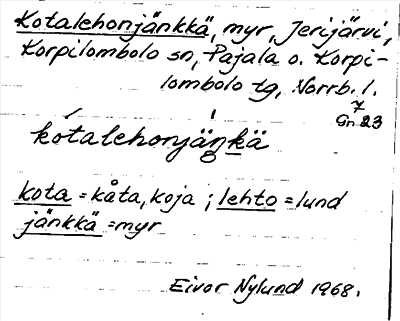 Kotalehonjänkkä, myr, Jerijärvi,
Korpilombolo sn, Pajala o. Korpi-
lombolo tg, Norrb. l.
7
Gn 23
kotalehonjäŋkä
kota = kåta, koja ; lehto = lund
jänkkä = myr
Eivor Nylund 1968.